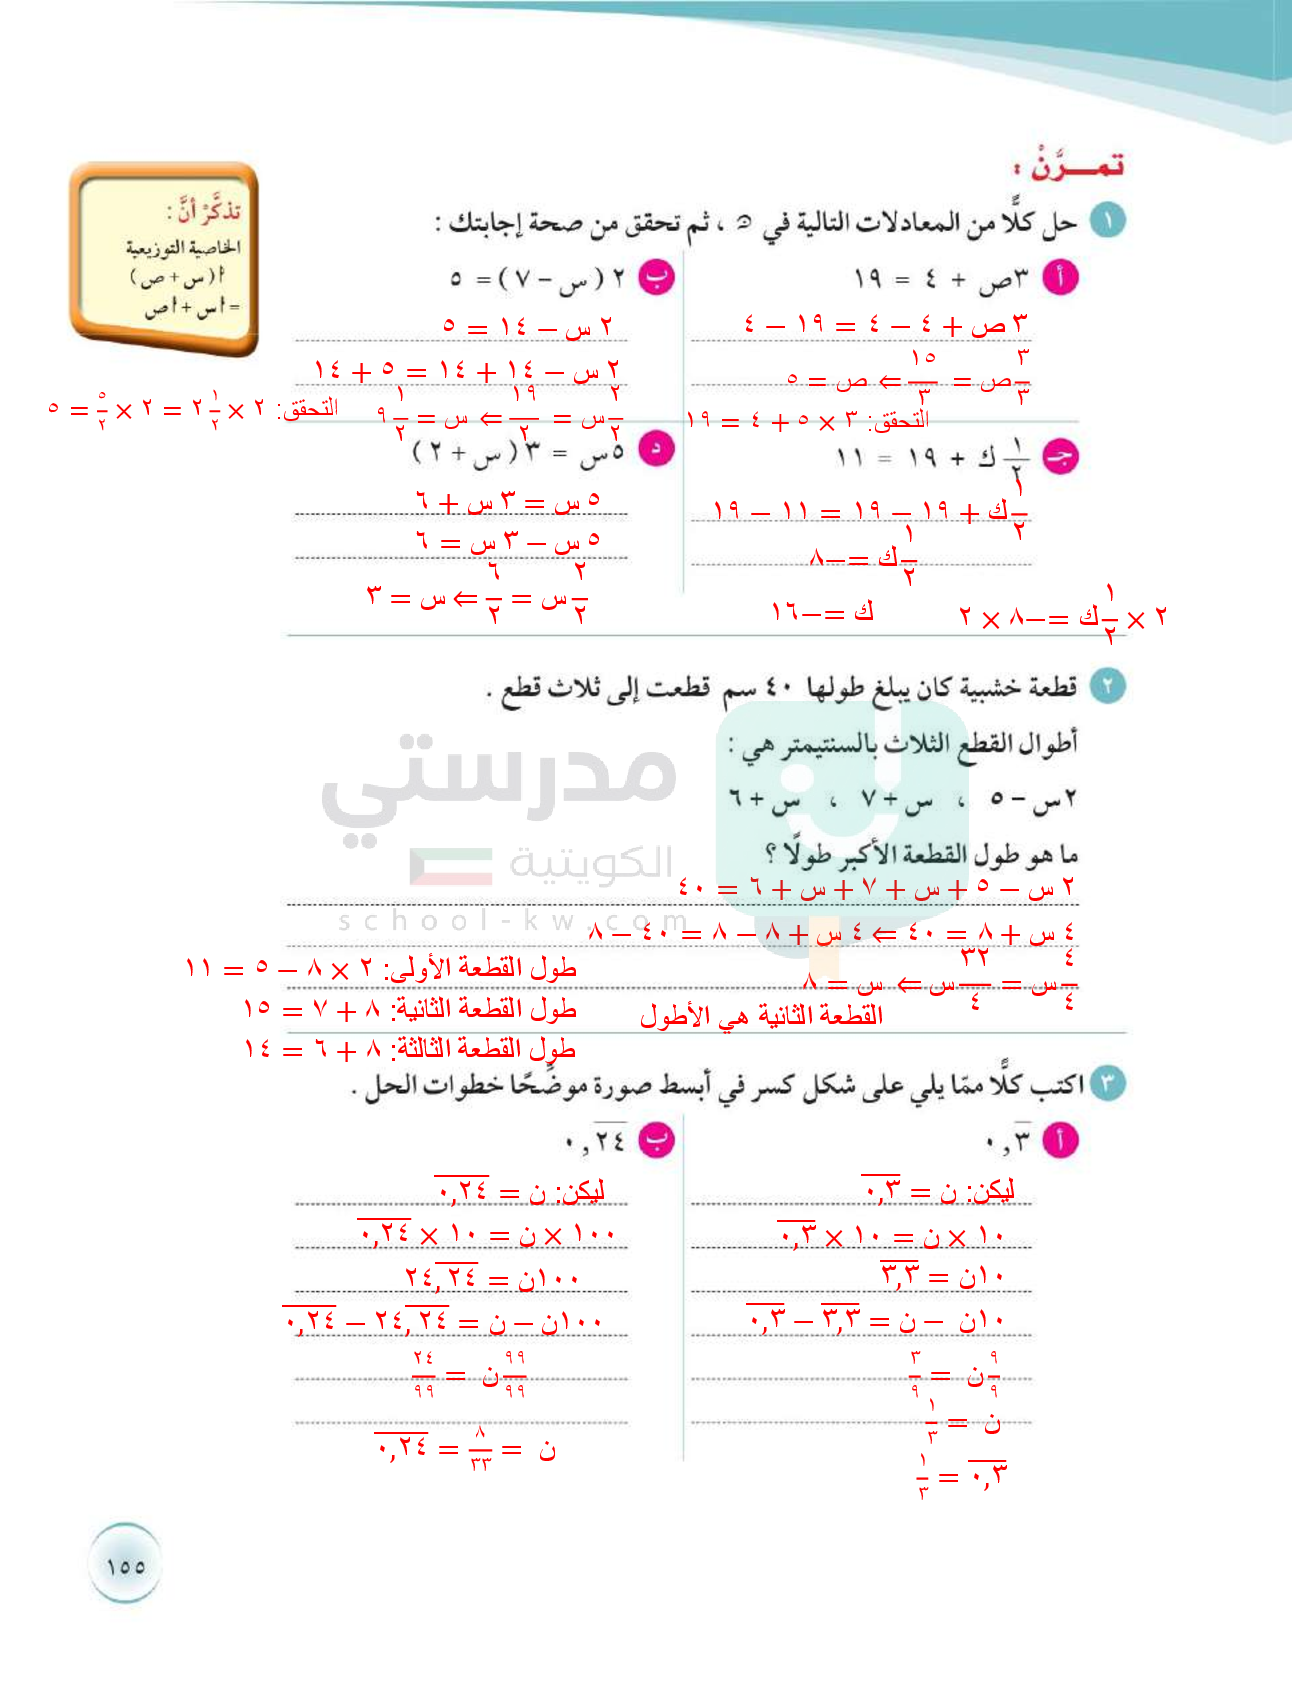 تمـــرَّنْ :
تذكَّرْ أنَّ :
الخاصية التوزيعية
أ(س + ص)
= أس + أص
١ حل كلًّا من المعادلات التالية في ن ، ثم تحقق من صحة إجابتك :
أ ٣ص + ٤ = ١٩
٣ ص + ٤ – ٤ = ١٩ – ٤
٣/٣ ص = ١٥/٣ ⇐ ص = ٥
التحقق: ٣ × ٥ + ٤ = ١٩
ب ٢ (س – ٧) = ٥
٢ س – ١٤ = ٥
٢ س – ١٤ + ١٤ = ٥ + ١٤
٢/٢ س = ١٩/٢ ⇐ س = ٩ ١/٢
التحقق: ٢ × ٢ ١/٢ = ٢ × ٥/٢ = ٥
جـ ١/٢ ك + ١٩ = ١١
١/٢ ك + ١٩ – ١٩ = ١١ – ١٩
١/٢ ك = –٨
٢ × ١/٢ ك = –٨ × ٢
ك = –١٦
د ٥س = ٣(س + ٢)
٥ س = ٣ س + ٦
٥ س – ٣ س = ٦
٢/٢ س = ٦/٢ ⇐ س = ٣
٢ قطعة خشبية كان يبلغ طولها ٤٠ سم قطعت إلى ثلاث قطع .
أطوال القطع الثلاث بالسنتيمتر هي :
٢س – ٥ ، س + ٧ ، س + ٦
ما هو طول القطعة الأكبر طولًا ؟
مدرستي
الكويتية
school-kw.com
٢ س – ٥ + س + ٧ + س + ٦ = ٤٠
٤ س + ٨ = ٤٠ ⇐ ٤ س + ٨ – ٨ = ٤٠ – ٨
٤/٤ س = ٣٢/٤ س ⇐ س = ٨
طول القطعة الأولى: ٢ × ٨ – ٥ = ١١
طول القطعة الثانية: ٨ + ٧ = ١٥
القطعة الثانية هي الأطول
طول القطعة الثالثة: ٨ + ٦ = ١٤
٣ اكتب كلًّا ممّا يلي على شكل كسر في أبسط صورة موضّحًا خطوات الحل .
أ ٠,٣̅
ليكن: ن = ٠,٣̅
١٠ × ن = ١٠ × ٠,٣̅
١٠ن = ٣,٣̅
١٠ن – ن = ٣,٣̅ – ٠,٣̅
٩/٩ ن = ٣/٩
ن = ١/٣
٠,٣̅ = ١/٣
ب ٠,٢̅٤̅
ليكن: ن = ٠,٢̅٤̅
١٠٠ × ن = ١٠ × ٠,٢̅٤̅
١٠٠ن = ٢٤,٢̅٤̅
١٠٠ن – ن = ٢٤,٢̅٤̅ – ٠,٢̅٤̅
٩٩/٩٩ ن = ٢٤/٩٩
ن = ٨/٣٣ = ٠,٢̅٤̅
١٥٥